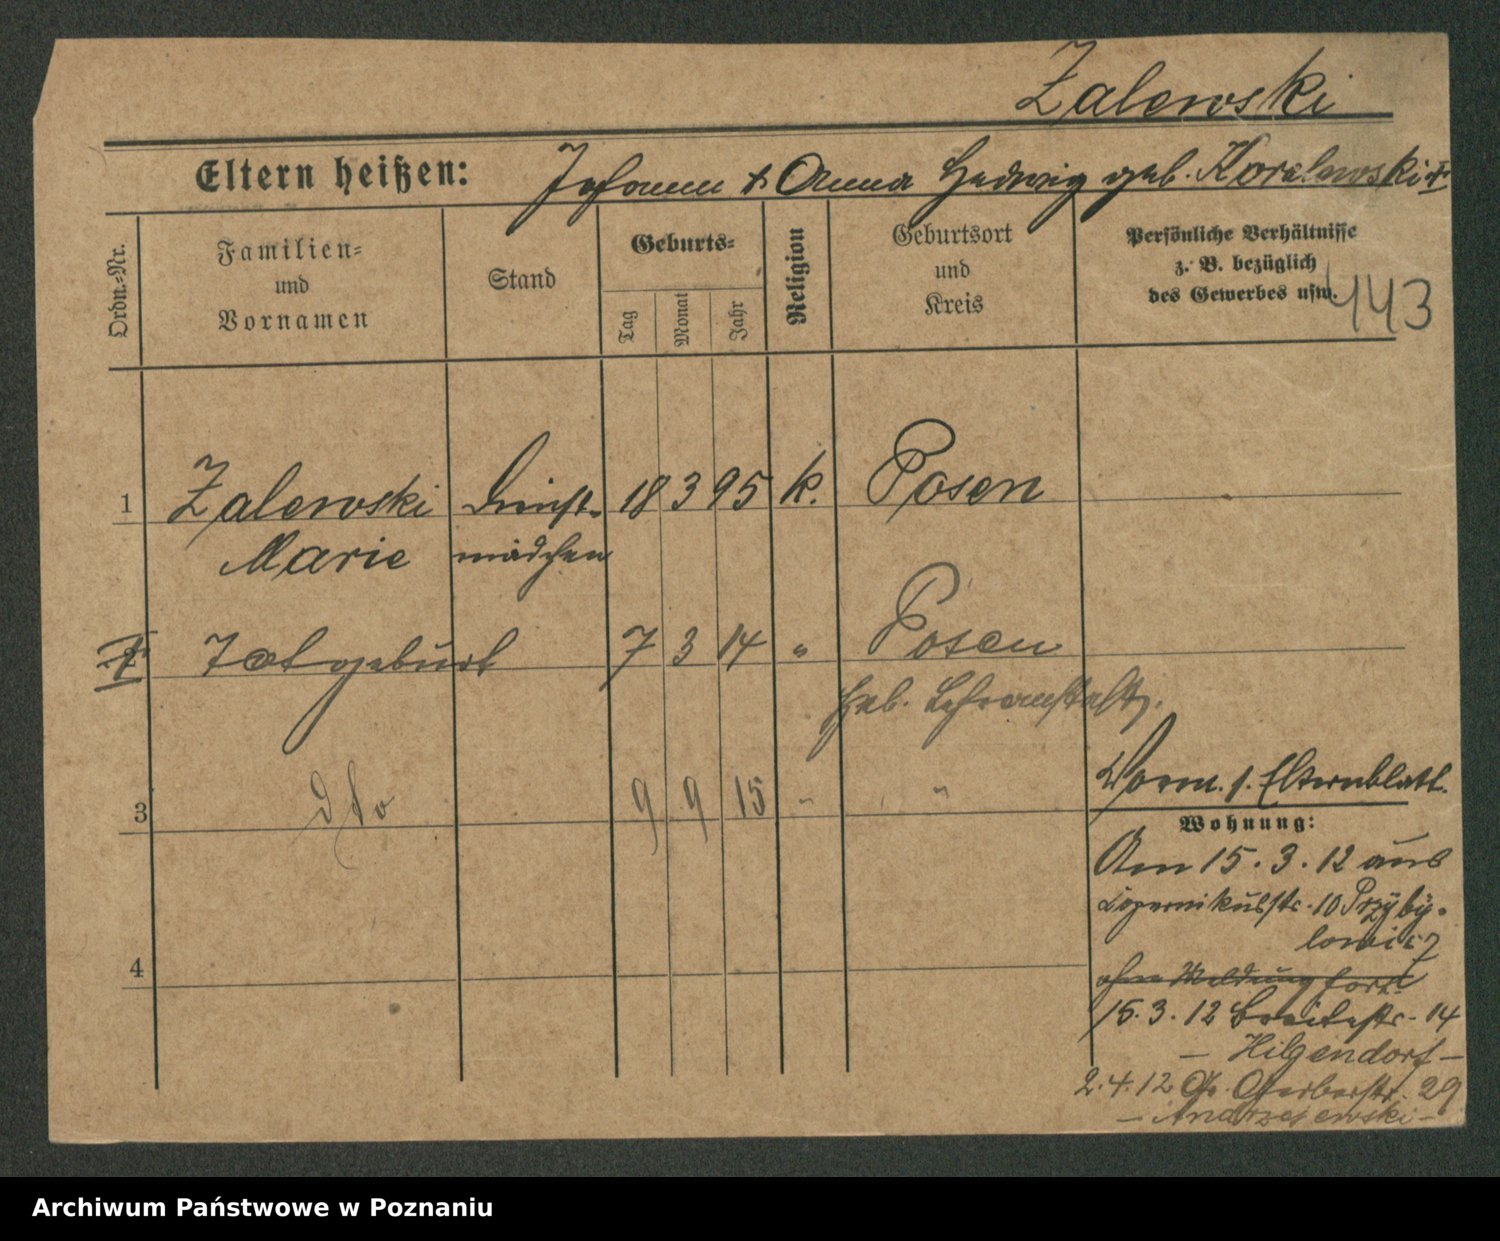 Zalewski
Eltern heißen: Johann & Anna Hedwig geb. Koralewski
Ordn.-Nr.
Familien-
und
Vornamen
Stand
Geburts-
Tag
Monat
Jahr
Religion
Geburtsort
und
Kreis
Persönliche Verhältnisse
z. B. bezüglich
des Gewerbes usw.
443
1 Zalewski Dienst- 18 3 95 k. Posen
Marie mädchen
Totgeburt 7 3 14 " Posen
Heb. Lehranstalt.
3 dto 9 9 15 " "
Vorm. s. Elternblatt.
Wohnung:
Am 15. 3. 12 aus
Kopernikusstr. 10 Przyby-
lowicz
4
ohne Meldung fort
15. 3. 12 Breitestr. 14
– Hilgendorf –
2. 4. 12 Gr. Gerberstr. 29
– Andrzejewski –
Archiwum Państwowe w Poznaniu